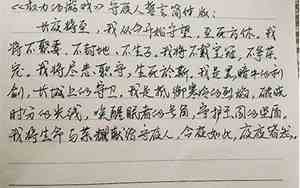 《权力的游戏》守夜人誓言简体版:
长夜将至,我从今开始守望,至死方休。我
将不娶妻、不封地、不生子。我将不戴宝冠,不争荣
宠。我将尽忠职守,生死于斯。我是黑暗中的利
剑,长城上的守卫。我是抵御寒冷的烈焰,破晓
时分的光线,唤醒眠者的号角,守护王国的坚盾。
我将生命与荣耀献给守夜人,今夜如此,夜夜皆然。